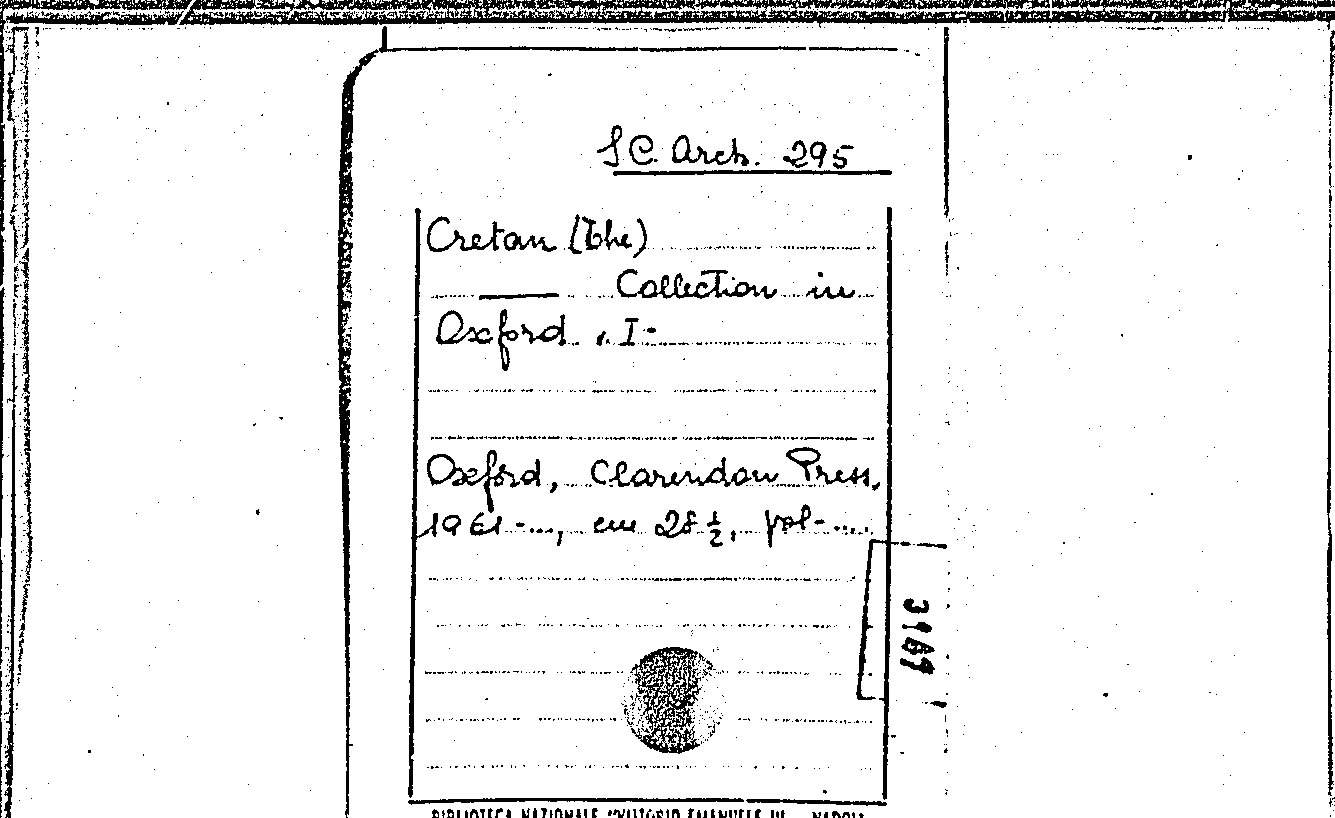 SC. Arch. 295
Cretan (The)
—— Collection in
Oxford, I-
Oxford, Clarendon Press,
1961-..., cm 28 ½, vol-....
BIBLIOTECA NAZIONALE "VITTORIO EMANUELE III - NAPOLI